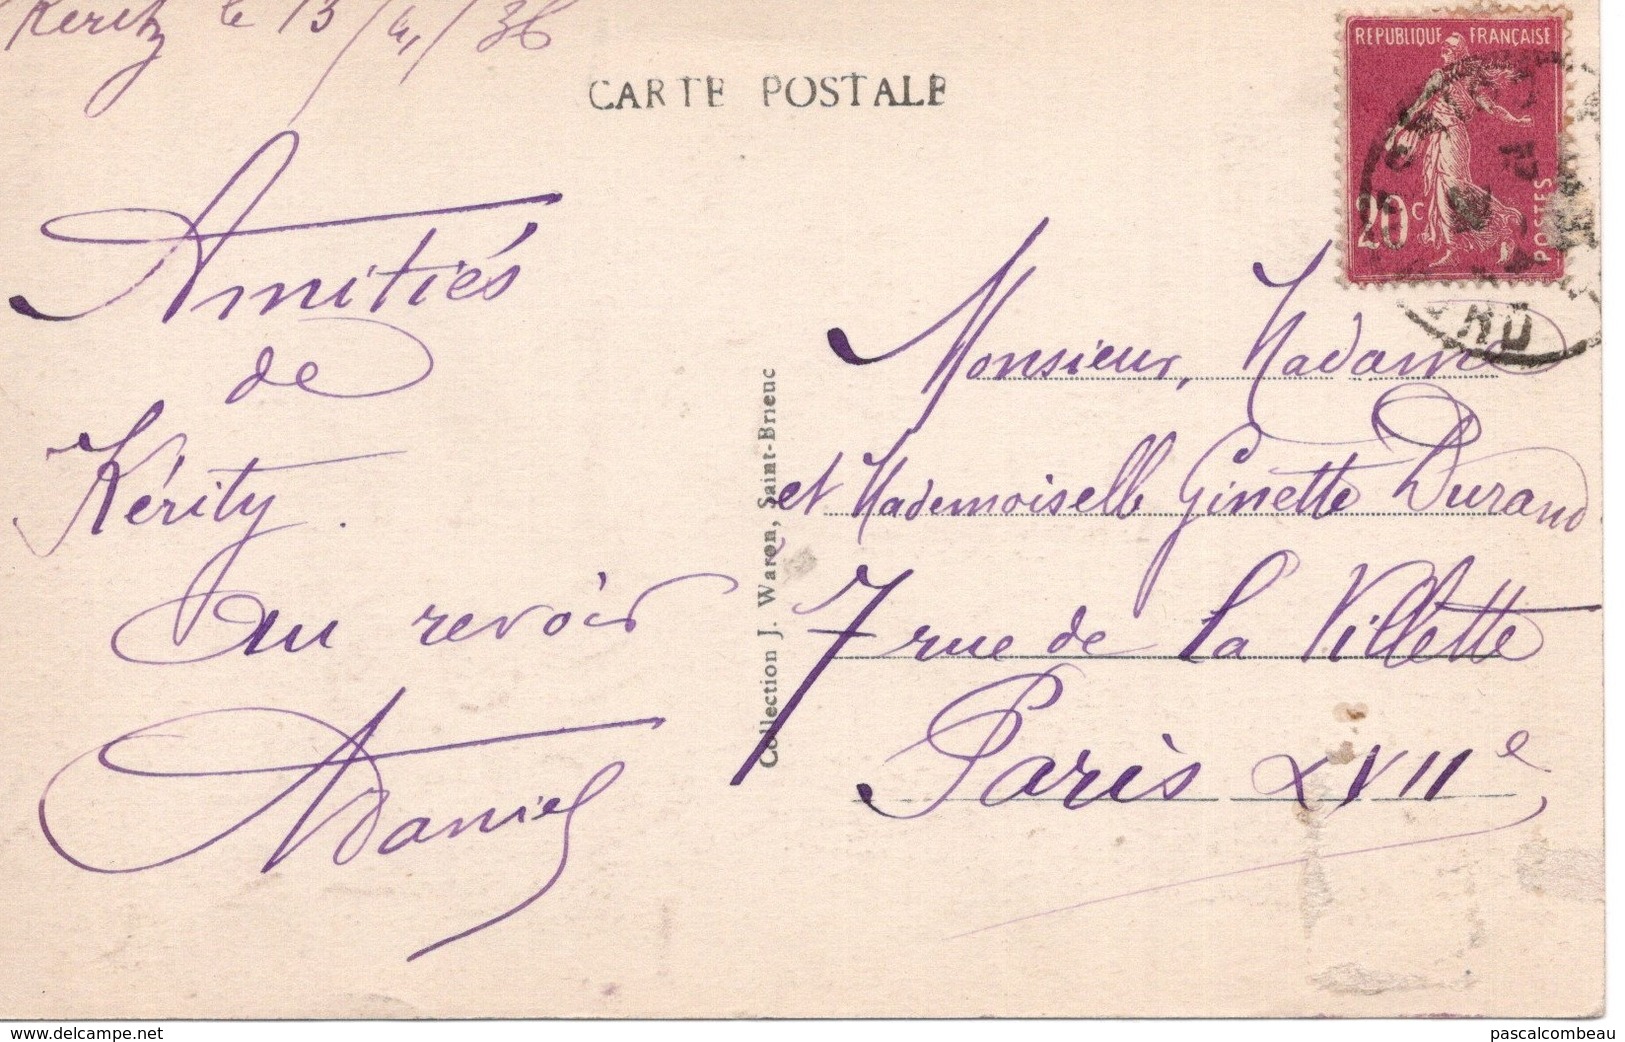 Kérity le 13/4/36
CARTE POSTALE
REPUBLIQUE FRANÇAISE
20c
POSTES
Amitiés
de
Kérity.
au revoir
Daniel
Collection J. Waron, Saint-Brieuc
Monsieur, Madame
et Mademoiselle Ginette Durand
7 rue de la Villette
Paris XVIIe
www.delcampe.net
pascalcombeau